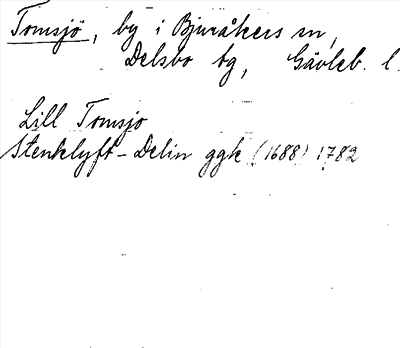 Tomsjö, by i Bjuråkers sn,
Delsbo tg, Gävleb. l.
Lill Tomsjö
Stenklyft-Delin ggk (1688) 1782